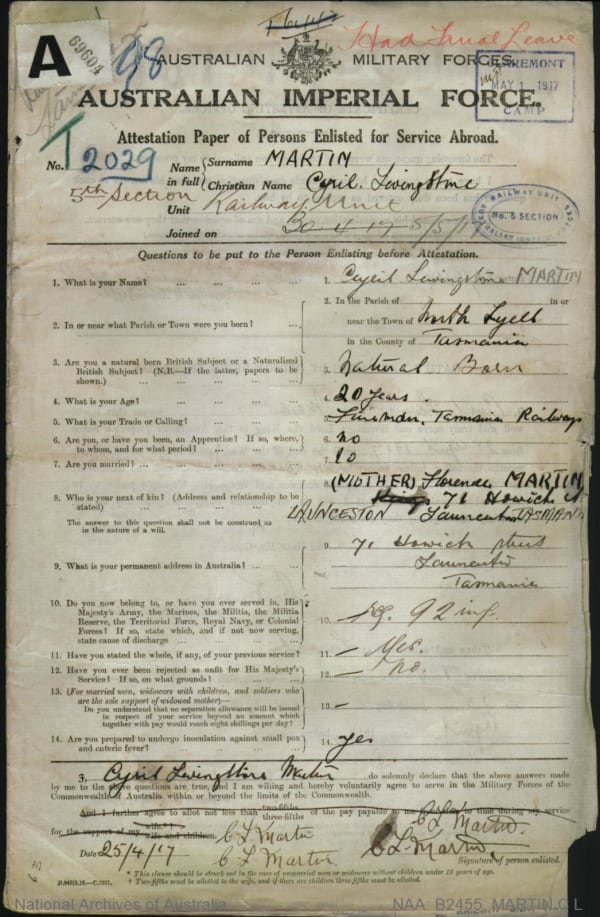 A
69604
98
Had Final Leave
AUSTRALIAN MILITARY FORCES.
CLAREMONT
MAY 1 1917
CAMP
AUSTRALIAN IMPERIAL FORCE.
Attestation Paper of Persons Enlisted for Service Abroad.
No. T2029
Name in full
Surname MARTIN
Christian Name Cyril Livingstone
5th Section
Unit Railway Unit
RAILWAY UNIT
No. 5 SECTION
AUSTRALIAN IMPERIAL
Joined on 30.4.17 5/5/17
Questions to be put to the Person Enlisting before Attestation.
1. What is your Name? ... ... ... 1. Cyril Livingstone MARTIN
2. In or near what Parish or Town were you born? ... 2. In the Parish of in or
near the Town of North Lyell
in the County of Tasmania
3. Are you a natural born British Subject or a Naturalized
British Subject? (N.B.—If the latter, papers to be
shown.) ... ... ... 3. Natural Born
4. What is your Age? ... ... ... 4. 20 years.
5. What is your Trade or Calling? ... ... 5. Fireman, Tasmania Railways
6. Are you, or have you been, an Apprentice? If so, where,
to whom, and for what period? ... ... 6. no
7. Are you married? ... ... ... 7. no
8. Who is your next of kin? (Address and relationship to be
stated) ... ... ... 8. (MOTHER) Florence MARTIN
71 Howick St
LAUNCESTON Launceston TASMANIA
The answer to this question shall not be construed as
in the nature of a will.
9. What is your permanent address in Australia? ... 9. 71 Howick Street
Launceston
Tasmania
10. Do you now belong to, or have you ever served in, His
Majesty's Army, the Marines, the Militia, the Militia
Reserve, the Territorial Force, Royal Navy, or Colonial
Forces? If so, state which, and if not now serving,
state cause of discharge ... ... 10. 92 inf.
11. Have you stated the whole, if any, of your previous service? 11. — Yes.
12. Have you ever been rejected as unfit for His Majesty's
Service? If so, on what grounds? ... 12. — no.
13. (For married men, widowers with children, and soldiers who
are the sole support of widowed mother)—
Do you understand that no separation allowance will be issued
in respect of your service beyond an amount which
together with pay would reach eight shillings per day? 13. —
14. Are you prepared to undergo inoculation against small pox
and enteric fever? ... ... ... 14. yes
I, Cyril Livingstone Martin do solemnly declare that the above answers made
by me to the above questions are true, and I am willing and hereby voluntarily agree to serve in the Military Forces of the
Commonwealth of Australia within or beyond the limits of the Commonwealth.
And I further agree to allot not less than two-fifths three-fifths of the pay payable to me from time to time during my service
for the support of my wife* wife and children. C L Martin C L Martin.
Date 25/4/17 C L Martin C L Martin.
Signature of person enlisted.
* This clause should be struck out in the case of unmarried men or widowers without children under 18 years of age.
† Two-fifths must be allotted to the wife, and if there are children three-fifths must be allotted.
National Archives of Australia
NAA: B2455, MARTIN C L